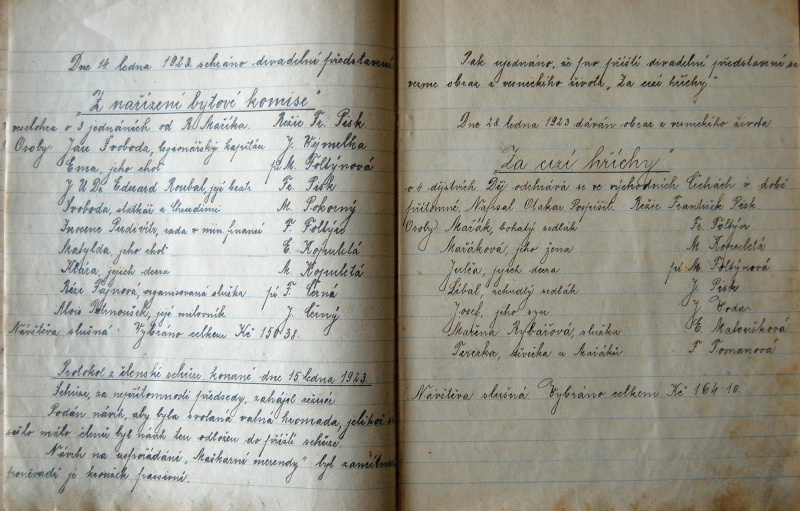 Dne 14. ledna 1923. sehráno divadelní představení
"Z nařízení bytové komise"
veselohra o 3 jednáních od R. Maříka. Režie Fr. Písk.
Osoby: Jan Svoboda, legionářský kapitán J. Výmelka
Ema, jeho choť pí M. Foltýnová
J. U. Dr. Eduard Roubal, její bratr Fr. Písk
Svoboda, sládek z Chrudimi M. Pokorný
Inocenc rada v min. financí F. Foltýn
Matylda, jeho choť E. Kopuletá
Klára, jejich dcera M. Kopuletá
Rézi organisovaná služka pí F. Černá
Alois její milovník J. Černý
Návštěva slušná. Vybráno celkem Kč 156·38.
Protokol z členské schůze konané dne 15. ledna 1923.
Schůze, za nepřítomnosti předsedy, zahájil režisér.
Podán návrh, aby byla svolána valná hromada, jelikož se
sešlo málo členů byl návrh ten odložen do příští schůze.
Návrh na uspořádání "Maškarní merendy" byl zamítnut
poněvadž je kroužek passivní.
Pak ujednáno, že pro příští divadelní představení se
vezme obraz z vesnického života "Za cizí hříchy."
Dne 28. ledna 1923 dáván obraz z vesnického života
"Za cizí hříchy"
o 4 dějstvích. Děj odehrává se ve východních Čechách v době
přítomné. Napsal Otakar Pospíšil. Režie František Písk
Osoby: Mařák, bohatý sedlák Fr. Foltýn
Mařáková, jeho žena M. Kopuletá
Julča, jejich dcera pí M. Foltýnová
Líbal, zchudlý sedlák J. Písk
Josef, jeho syn J. Voda
Mařena Rybářová, služka E. Matoušková
Terezka, děvečka u Mařáků F. Tomanová
Návštěva slušná. Vybráno celkem Kč 164·10.